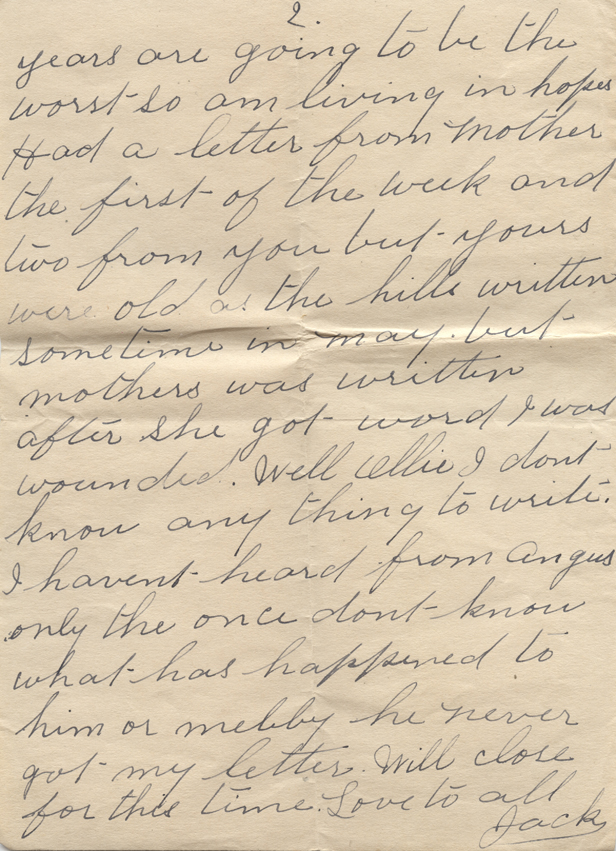 2.
years are going to be the
worst so am living in hopes
Had a letter from Mother
the first of the week and
two from you but yours
were old as the hills written
sometime in may. but
mothers was written
after she got word I was
wounded. Well Ollie I dont
know any thing to write.
I havent heard from Angus
only the once dont know
what has happened to
him or mebby he never
got my letter. Will close
for this time. Love to all
Jack